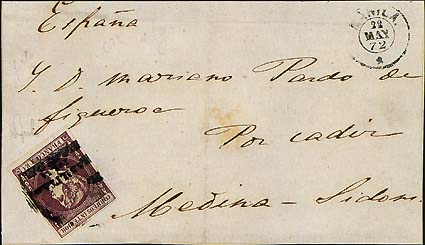 España
MANILA.
22
MAY
72
S. D. Mariano Pardo de
figueroa
Por cadiz
Medina - Sidonia